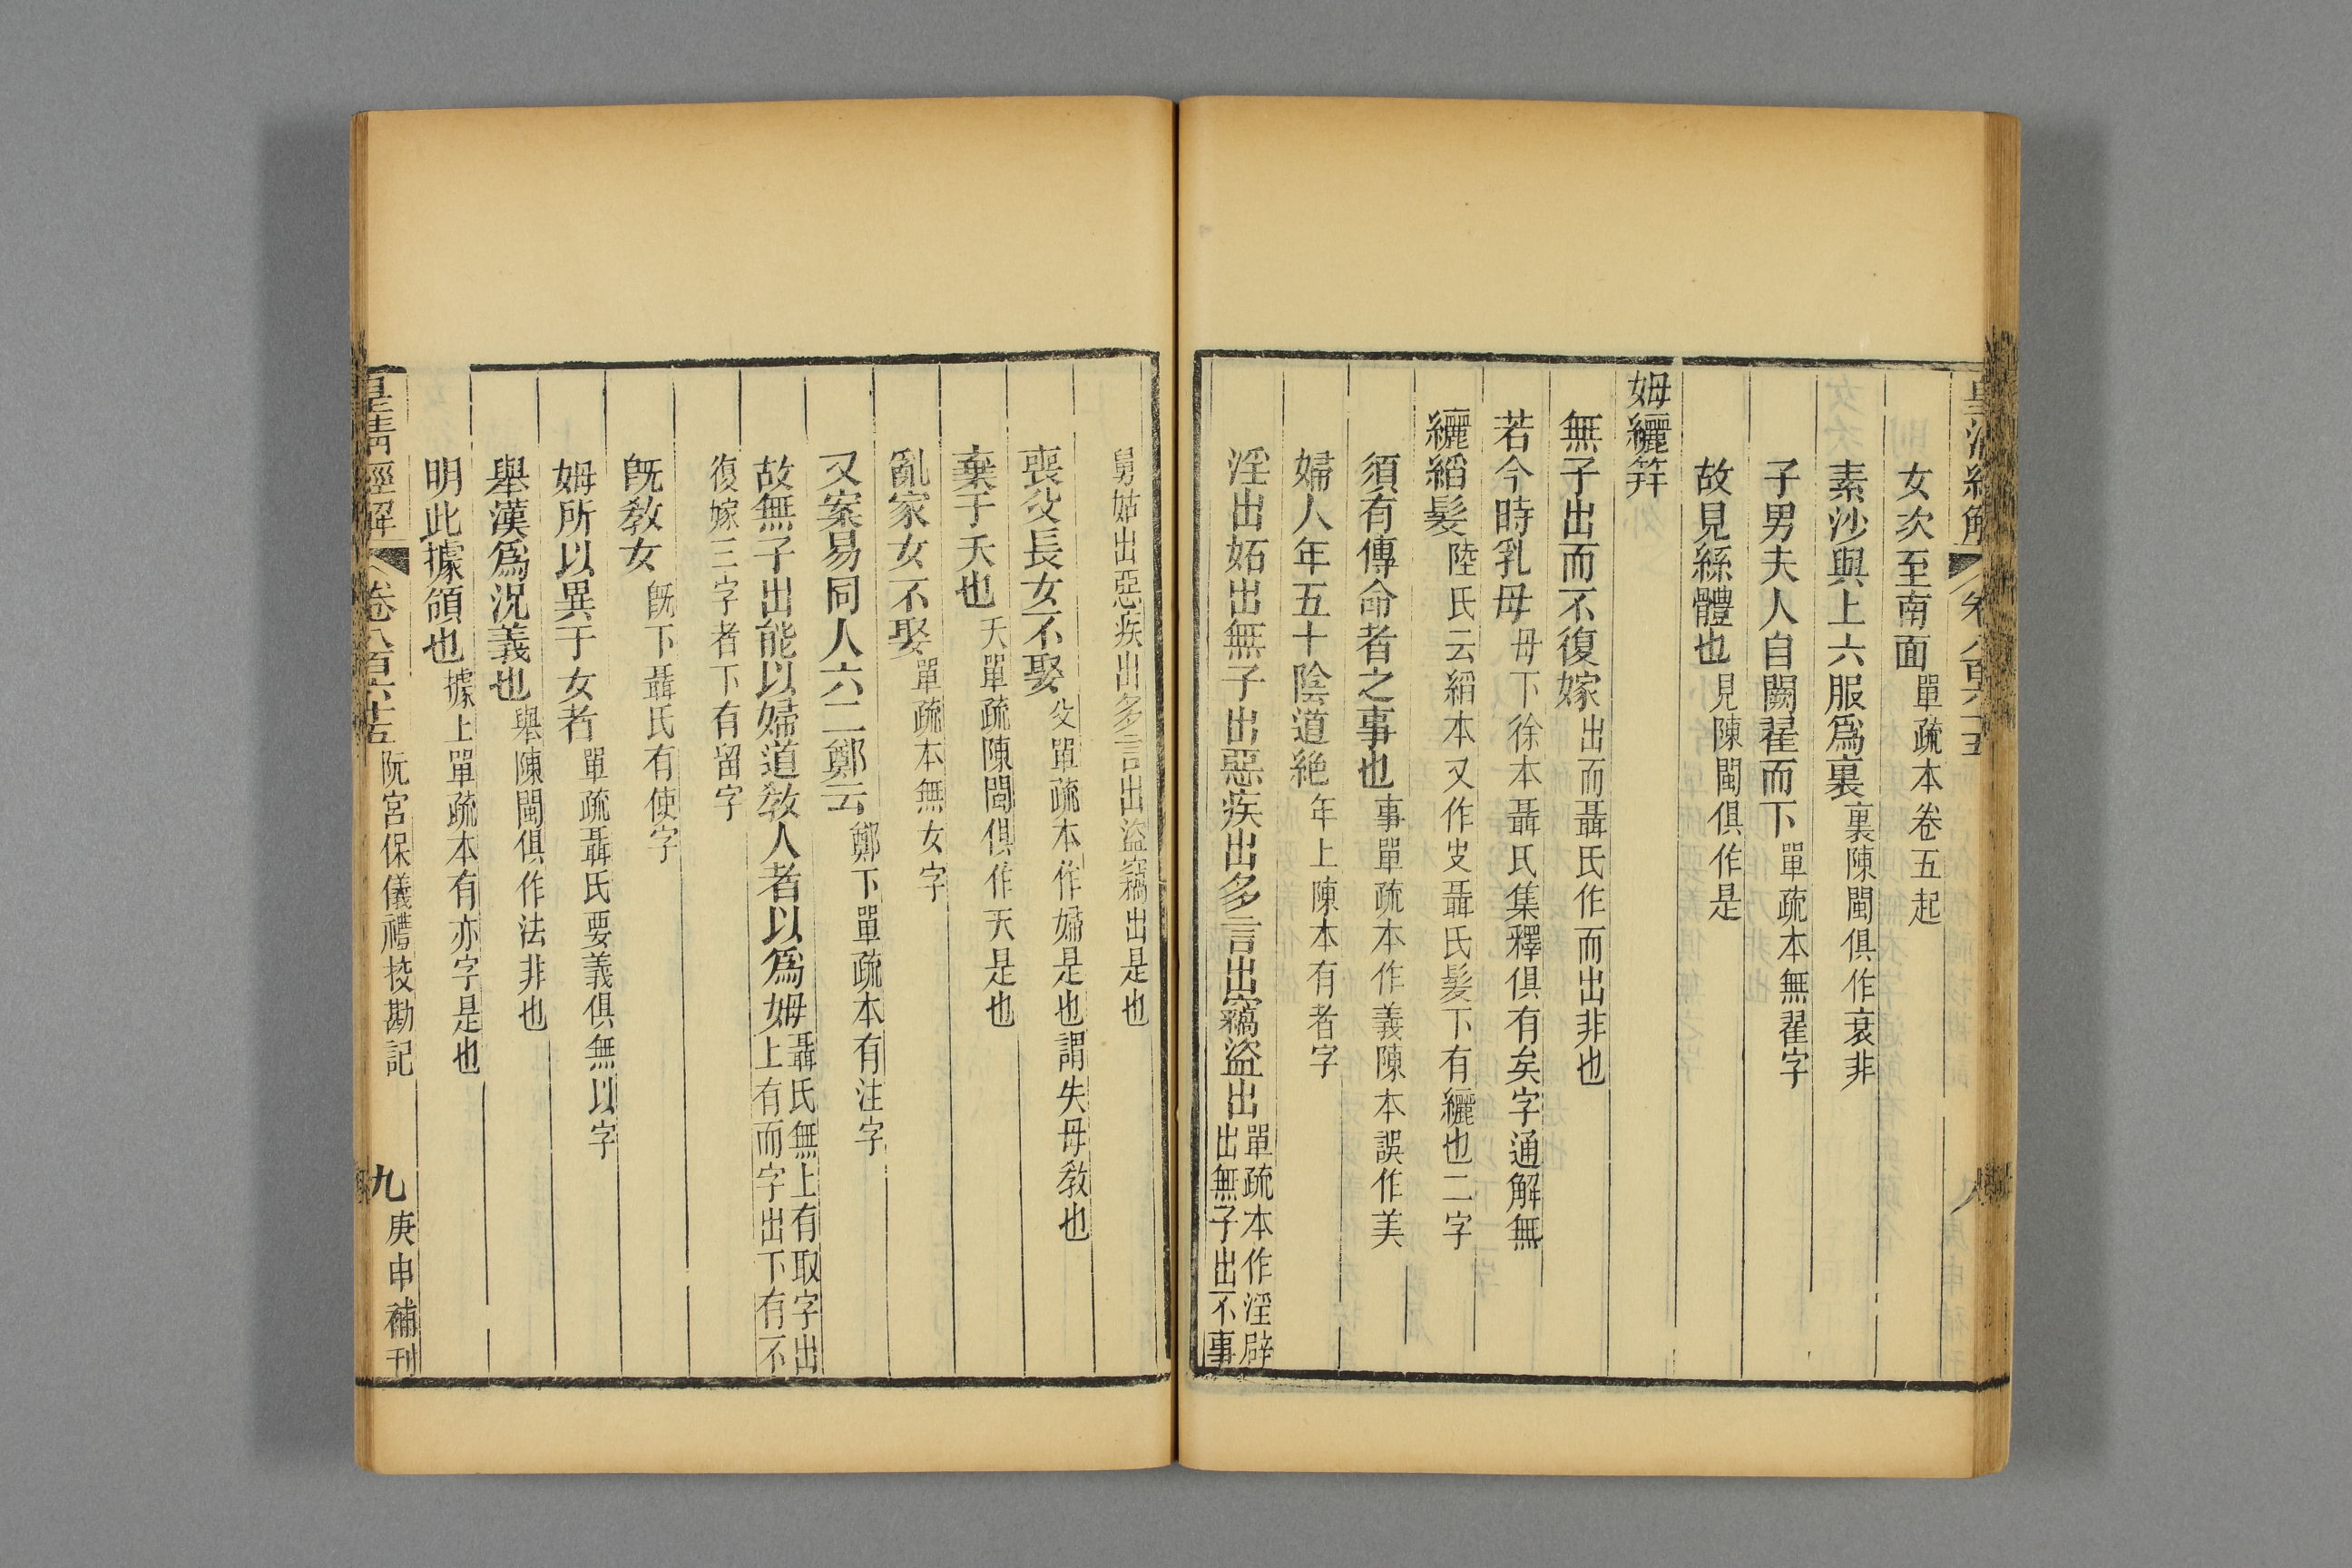 女次至南面單疏本卷五起
素沙與上六服爲裏裏陳閩俱作衰非
子男夫人自闕翟而下單疏本無翟字
故見絲體也見陳閩俱作是
姆纚笄
無子出而不復嫁出而聶氏作而出非也
若今時乳母母下徐本聶氏集釋俱有矣字通解無
纚縚髪陸氏云縚本又作㕜聶氏髮下有纚也二字
須有傳命者之事也事單疏本作義陳本誤作美
婦人年五十陰道絶年上陳本有者字
淫出妬出無子出惡疾出多言出竊盜出單疏本作淫辟
出無子出不事
舅姑出惡疾出多言出盜竊出是也
喪父長女不娶父單疏本作婦是也謂失母敎也
棄于夭也夭單疏陳閩俱作天是也
亂家女不娶單疏本無女字
又案易同人六二鄭云鄭下單疏本有注字
故無子出能以婦道敎人者以爲姆聶氏無上有取字出
上有而字出下有不
復嫁三字者下有留字
旣敎女旣下聶氏有使字
姆所以異于女者單疏聶氏要義俱無以字
舉漢爲況義也舉陳閩俱作法非也
明此據領也據上單疏本有亦字是也
皇淸經解 卷八百六十五 阮宮保儀禮挍勘記 九 庚申補刊